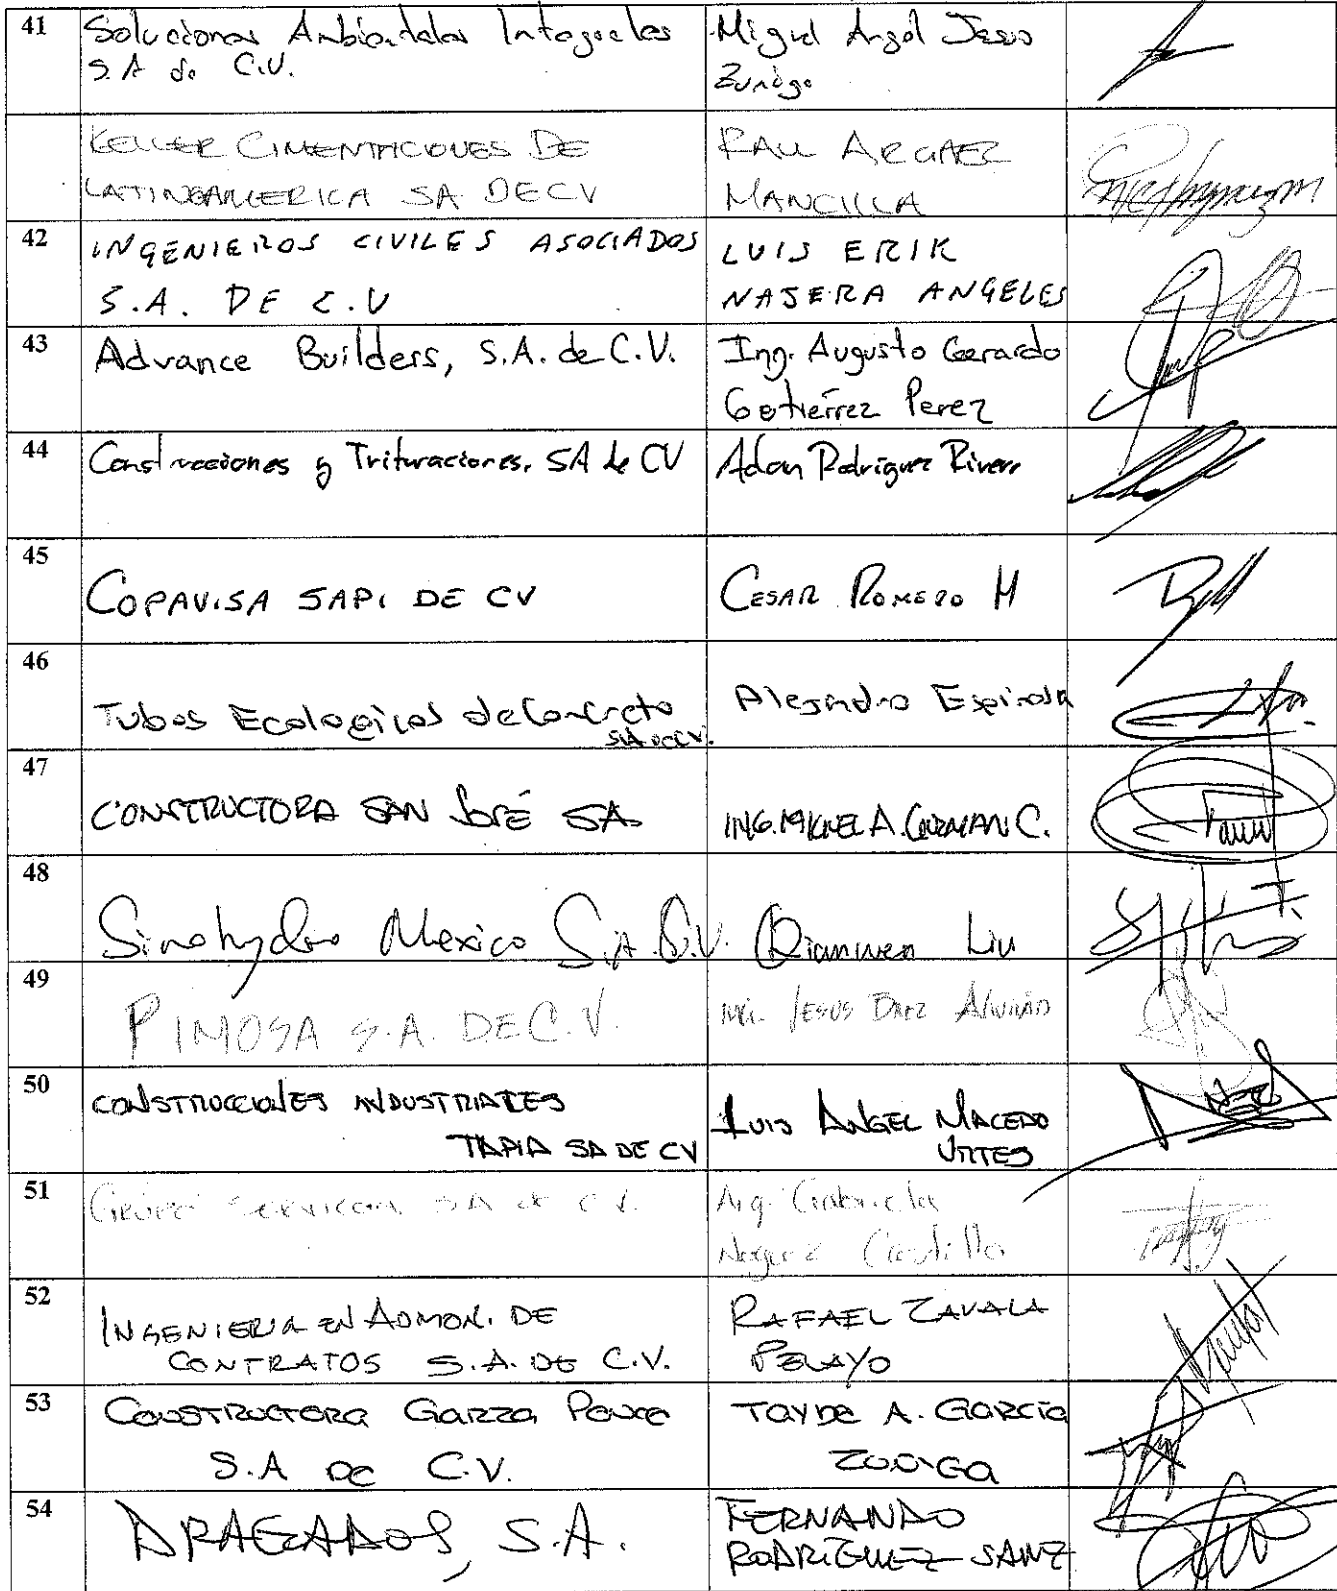 41 Soluciones Ambientales Integrales Miguel Angel Jesus
S.A de C.V. Zuñiga
KELLER CIMENTACIONES DE RAUL ARGAEZ
LATINOAMERICA SA DE CV MANCILLA
42 INGENIEROS CIVILES ASOCIADOS LUIS ERIK
S.A. DE C.V NAJERA ANGELES
43 Advance Builders, S.A. de C.V. Ing. Augusto Gerardo
Gutierrez Perez
44 Construcciones y Trituraciones, SA de CV Adan Rodriguez Rivera
45
COPAVISA SAPI DE CV CESAR ROMERO M
46
Tubos Ecologicos de Concreto Alejandro Espinosa
SA DE CV.
47
CONSTRUCTORA SAN José SA. ING. MIGUEL A. GUZMAN C.
48
Sinohydro Mexico S.A. C.V. Qianwen Liu
49
PIMOSA S.A. DE C.V. ING. JESUS BAEZ
50 CONSTRUCCIONES INDUSTRIALES LUIS ANGEL MACEDO
TAPIA SA DE CV
51 GRUPO SA de C.V. Arq. Gabriela
Castillo
52 INGENIERIA EN ADMON. DE RAFAEL ZAVALA
CONTRATOS S.A. DE C.V. PELAYO
53 CONSTRUCTORA GARZA PONCE TAYDE A. GARCIA
S.A DE C.V. ZUÑIGA
54 DRAGADOS, S.A. FERNANDO
RODRIGUEZ SANZ